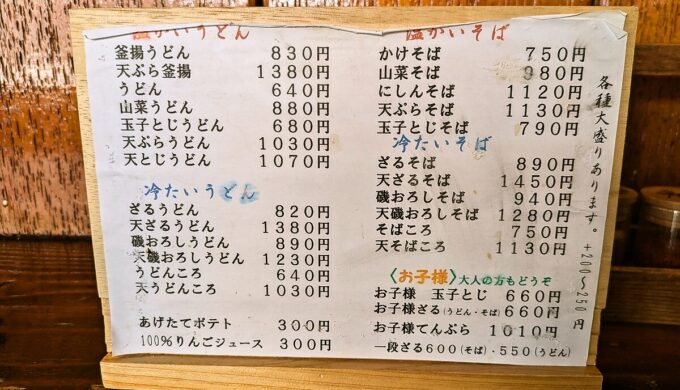 温かいうどん
釜揚うどん 830円
天ぷら釜揚 1380円
うどん 640円
山菜うどん 880円
玉子とじうどん 680円
天ぷらうどん 1030円
天とじうどん 1070円
冷たいうどん
ざるうどん 820円
天ざるうどん 1380円
磯おろしうどん 890円
天磯おろしうどん 1230円
うどんころ 640円
天うどんころ 1030円
あげたてポテト 300円
100%りんごジュース 300円
温かいそば
かけそば 750円
山菜そば 980円
にしんそば 1120円
天ぷらそば 1130円
玉子とじそば 790円
冷たいそば
ざるそば 890円
天ざるそば 1450円
磯おろしそば 940円
天磯おろしそば 1280円
そばころ 750円
天そばころ 1130円
〈お子様〉大人の方もどうぞ
お子様 玉子とじ 660円
お子様ざる(うどん・そば) 660円
お子様てんぷら 1010円
一段ざる600(そば)・550(うどん)
各種大盛りあります。+200〜250円